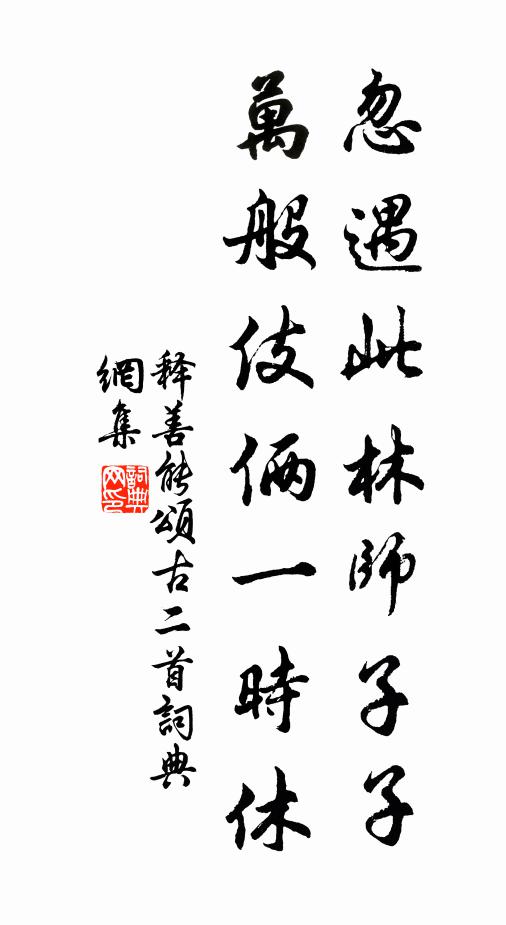 忽遇此林師子子
萬般伎倆一時休
释善能頌古二首詞典
網集
詞典
网印